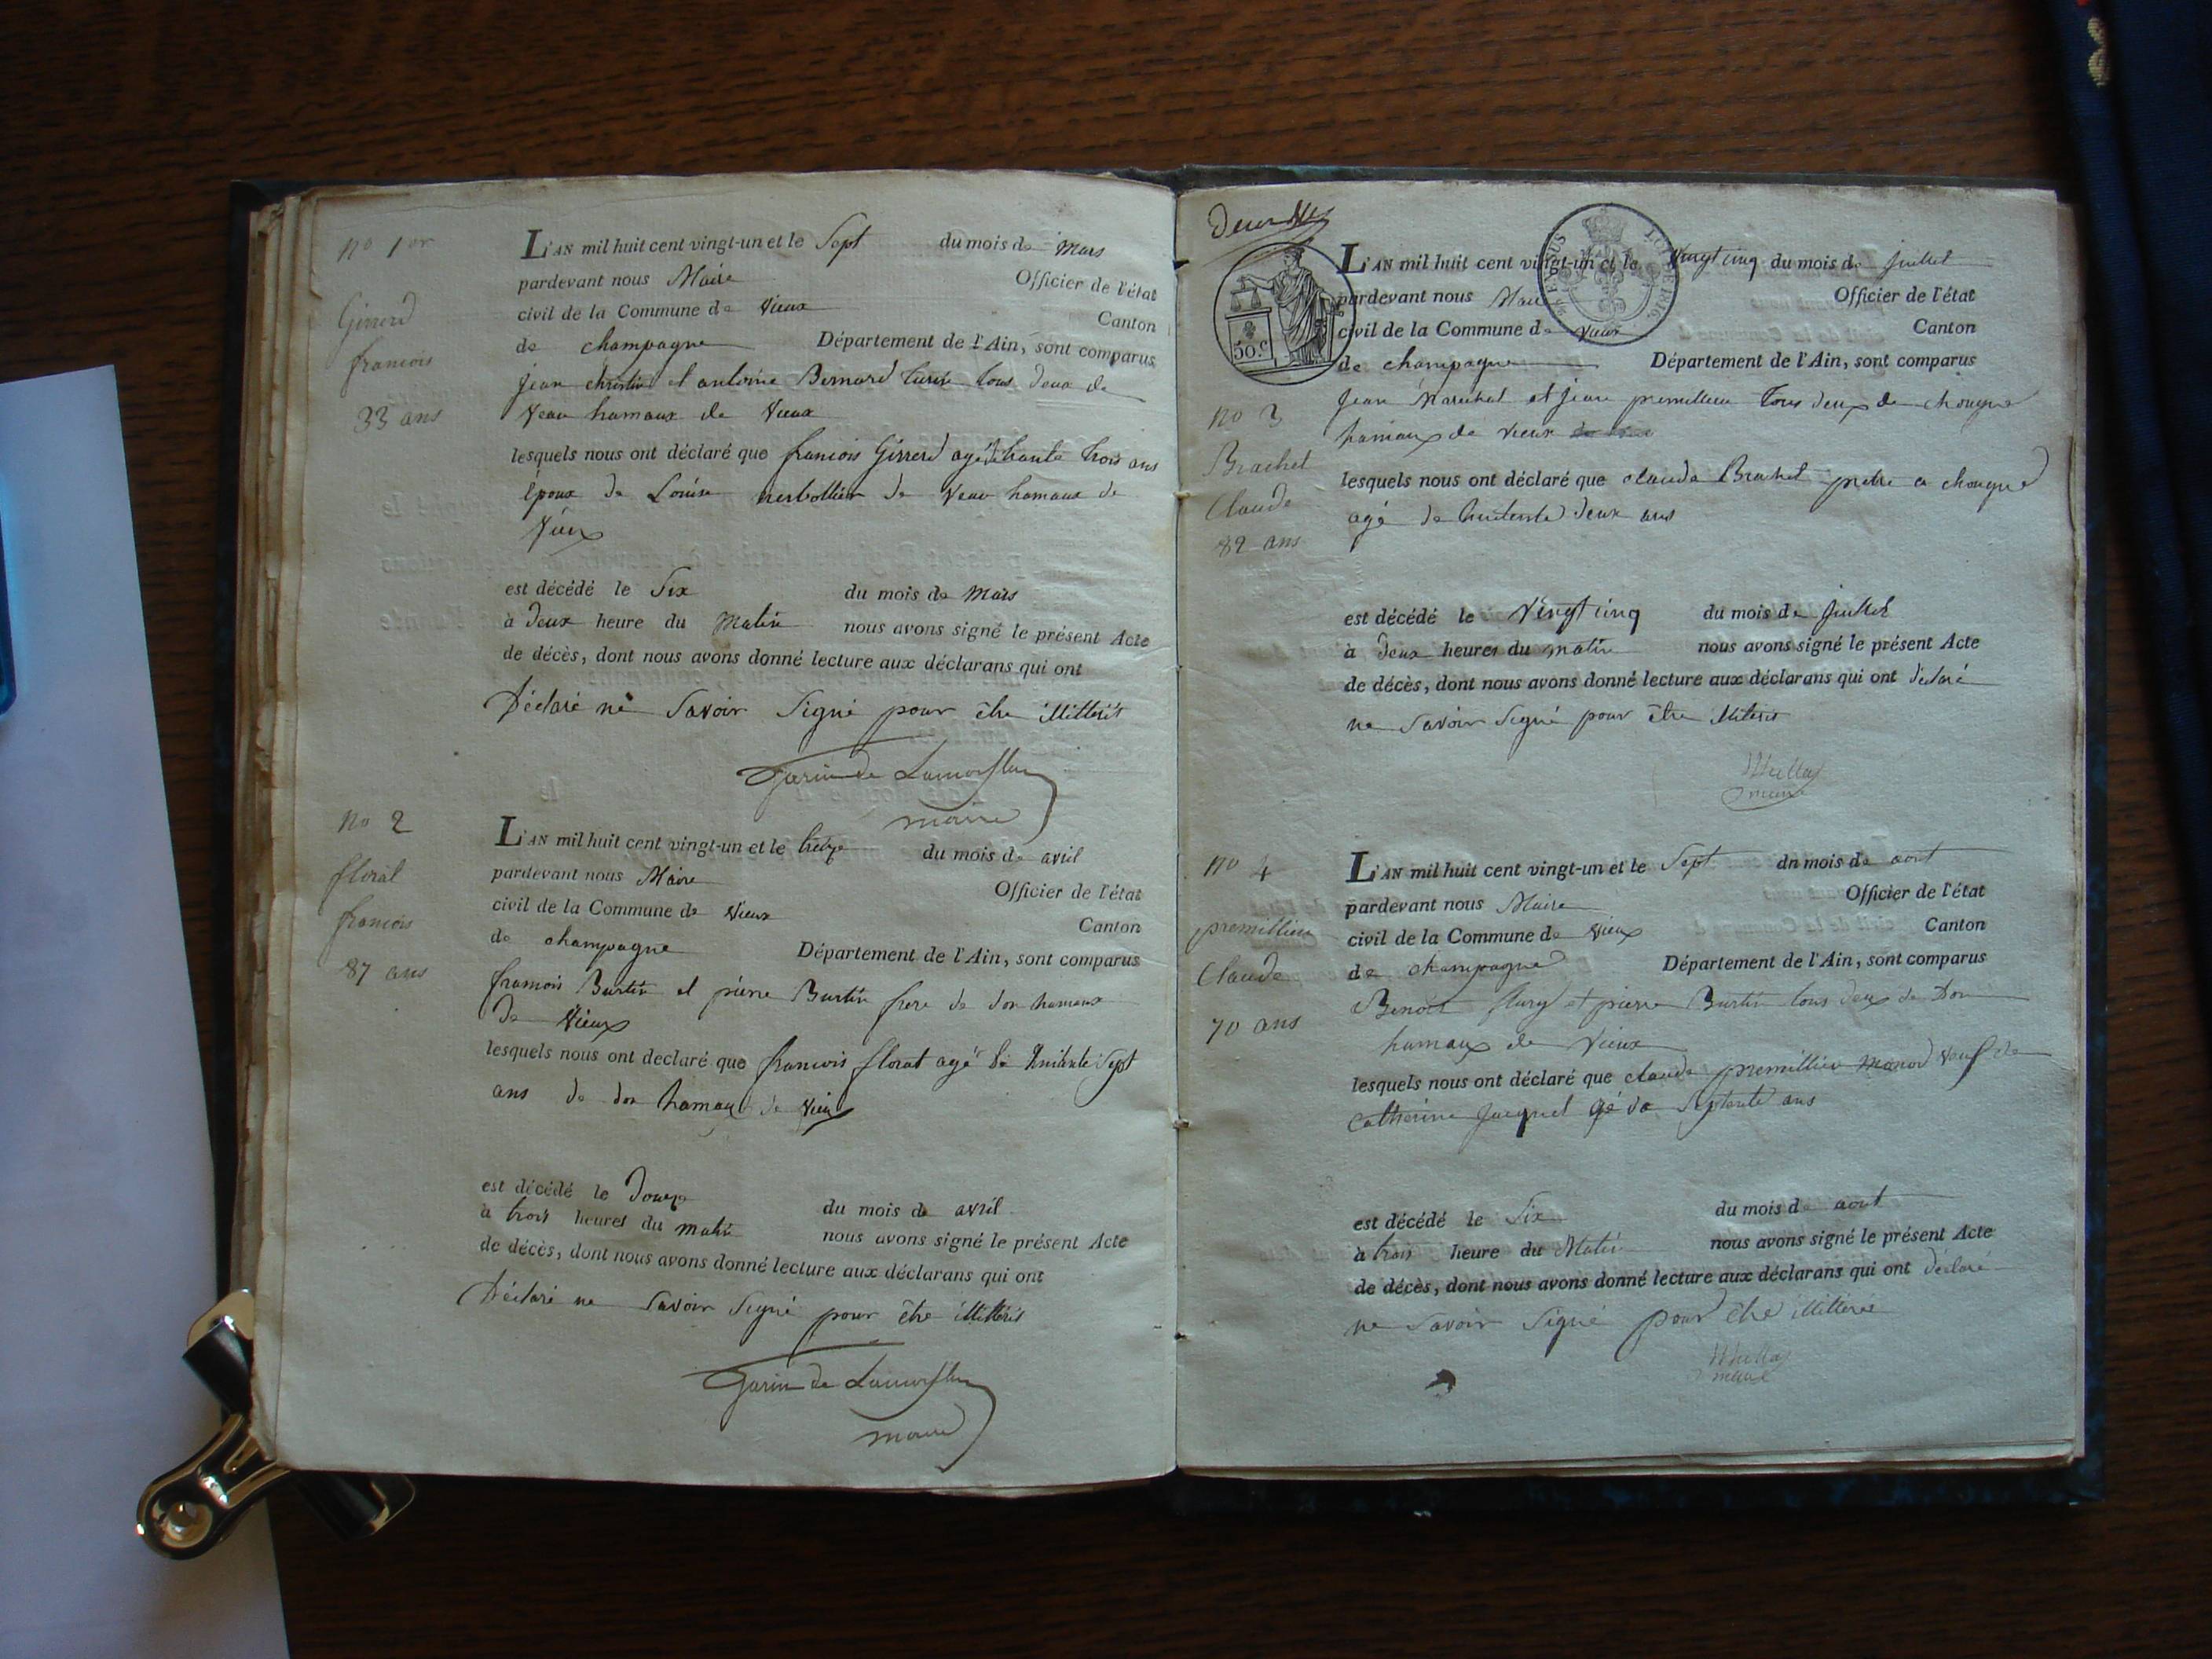 no 1er
Girrerd
francois
33 ans
L'AN mil huit cent vingt-un et le Sept du mois de Mars
pardevant nous Maire Officier de l'état
civil de la Commune de Vieux Canton
de champagne Département de l'Ain, sont comparus
jean et antoine Bernard tous deux de
hamaux de Vieux
lesquels nous ont déclaré que francois Girrerd agé trante trois ans
Epoux de Louise de hamaux de
Vieux
est décédé le Six du mois de Mars
à deux heure du Matin nous avons signé le présent Acte
de décès, dont nous avons donné lecture aux déclarans qui ont
Déclaré ne Savoir Signé pour être illitterés
Garin de
maire
no 2
floral
francois
87 ans
L'AN mil huit cent vingt-un et le treize du mois de avril
pardevant nous Maire Officier de l'état
civil de la Commune de Vieux Canton
de champagne Département de l'Ain, sont comparus
francois Burtin et pierre Burtin frere de don hameaux
de Vieux
lesquels nous ont declaré que francois florat agé de huitante Sept
ans de don hamaux de Vieux
est décédé le douze du mois de avril
à trois heures du matin nous avons signé le présent Acte
de décès, dont nous avons donné lecture aux déclarans qui ont
Déclaré ne Savoir Signé pour être illitterés
Garin de
maire
50.c
LOI DE 1816.
no 3
Brachet
Claude
82 ans
L'AN mil huit cent vingt-un et le Vingt cinq du mois de juillet
pardevant nous Maire Officier de l'état
civil de la Commune de Vieux Canton
de champagne Département de l'Ain, sont comparus
Jean Marechal et jean premillieu Tous deux de chongne
hamaux de Vieux
lesquels nous ont déclaré que claude Brachet pretre a chongne
agé de huitente deux ans
est décédé le Vingt cinq du mois de juillet
à deux heures du matin nous avons signé le présent Acte
de décès, dont nous avons donné lecture aux déclarans qui ont déclaré
ne Savoir Signé pour être illiteres
maire
no 4
premillieu
Claude
70 ans
L'AN mil huit cent vingt-un et le Sept dn mois de aout
pardevant nous Maire Officier de l'état
civil de la Commune de Vieux Canton
de champagne Département de l'Ain, sont comparus
Benoit flury et pierre Burtin tous deux de Don
hamaux de Vieux
lesquels nous ont déclaré que claude premillieu Veuf de
Catherine Jacquet agé de Septente ans
est décédé le Six du mois de aout
à trois heure du Matin nous avons signé le présent Acte
de décès, dont nous avons donné lecture aux déclarans qui ont déclaré
ne Savoir Signé pour être illitteré
maire